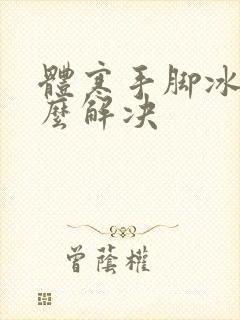 體寒手脚冰
麼解决
曾蔭權